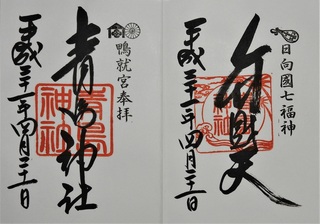 鴨就宮奉拝
青島神社
平成三十一年四月三十日
青島
神社
日向國七福神
弁財天
平成三十一年四月三十日